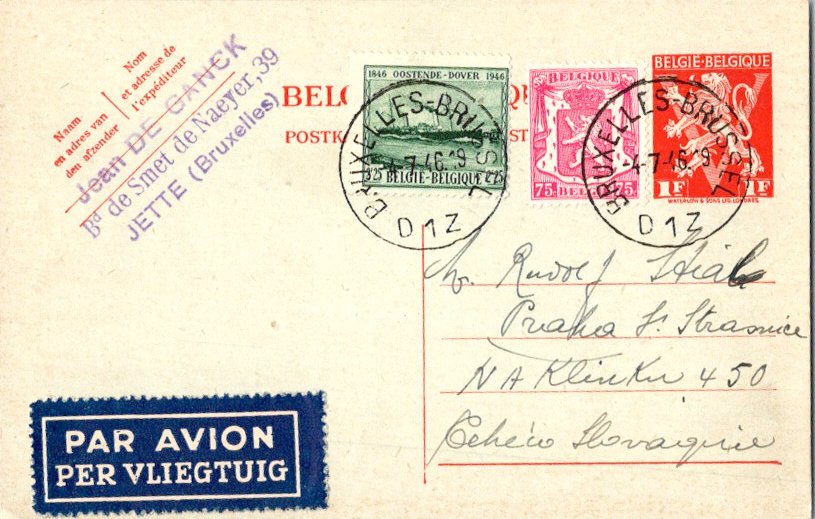 Nom
et adresse de
l'expéditeur
Naam
en adres van
den afzender
Jean DE GANCK
Bd de Smet de Naeyer, 39
JETTE (Bruxelles)
BEL
POSTK
1846 OOSTENDE-DOVER 1946
3F25 BELGIË-BELGIQUE
BELGIQUE
75c BELG 75c
BELGIË-BELGIQUE
1F 1F
WATERLOW & SONS LTD. LONDRES
BRUXELLES-BRUSSEL
4-7-46-9
D1Z
BRUXELLES-BRUSSEL
4-7-46-9
D1Z
Rudolf
Praha Strasnice
NA Klinku 450
Slovaquie
PAR AVION
PER VLIEGTUIG